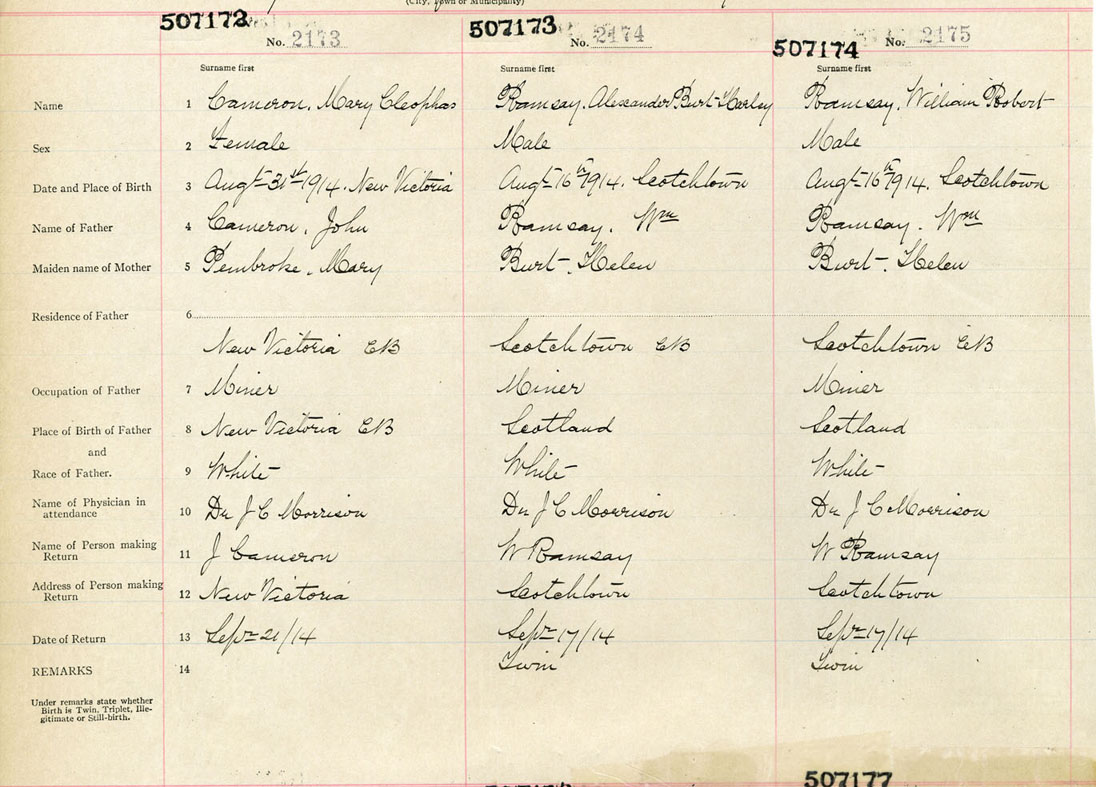 (City, Town or Municipality)
507172 507173 507174
No. 2173 No. 2174 No. 2175
Surname first Surname first Surname first
Name 1 Cameron, Mary Cleophas Ramsay, Alexander Burt Harley Ramsay, William Robert
Sex 2 Female Male Male
Date and Place of Birth 3 Augt 31st 1914. New Victoria Augt 16th 1914. Scotchtown Augt 16th 1914. Scotchtown
Name of Father 4 Cameron, John Ramsay. Wm Ramsay. Wm
Maiden name of Mother 5 Pembroke, Mary Burt, Helen Burt, Helen
Residence of Father 6
New Victoria CB Scotchtown CB Scotchtown CB
Occupation of Father 7 Miner Miner Miner
Place of Birth of Father 8 New Victoria CB Scotland Scotland
and
Race of Father. 9 White White White
Name of Physician in
attendance 10 Dr J C Morrison Dr J C Morrison Dr J C Morrison
Name of Person making
Return 11 J Cameron W Ramsay W Ramsay
Address of Person making
Return 12 New Victoria Scotchtown Scotchtown
Date of Return 13 Sepr 21/14 Sepr 17/14 Sepr 17/14
REMARKS 14 Twin Twin
Under remarks state whether
Birth is Twin, Triplet, Ille-
gitimate or Still-birth.
507177